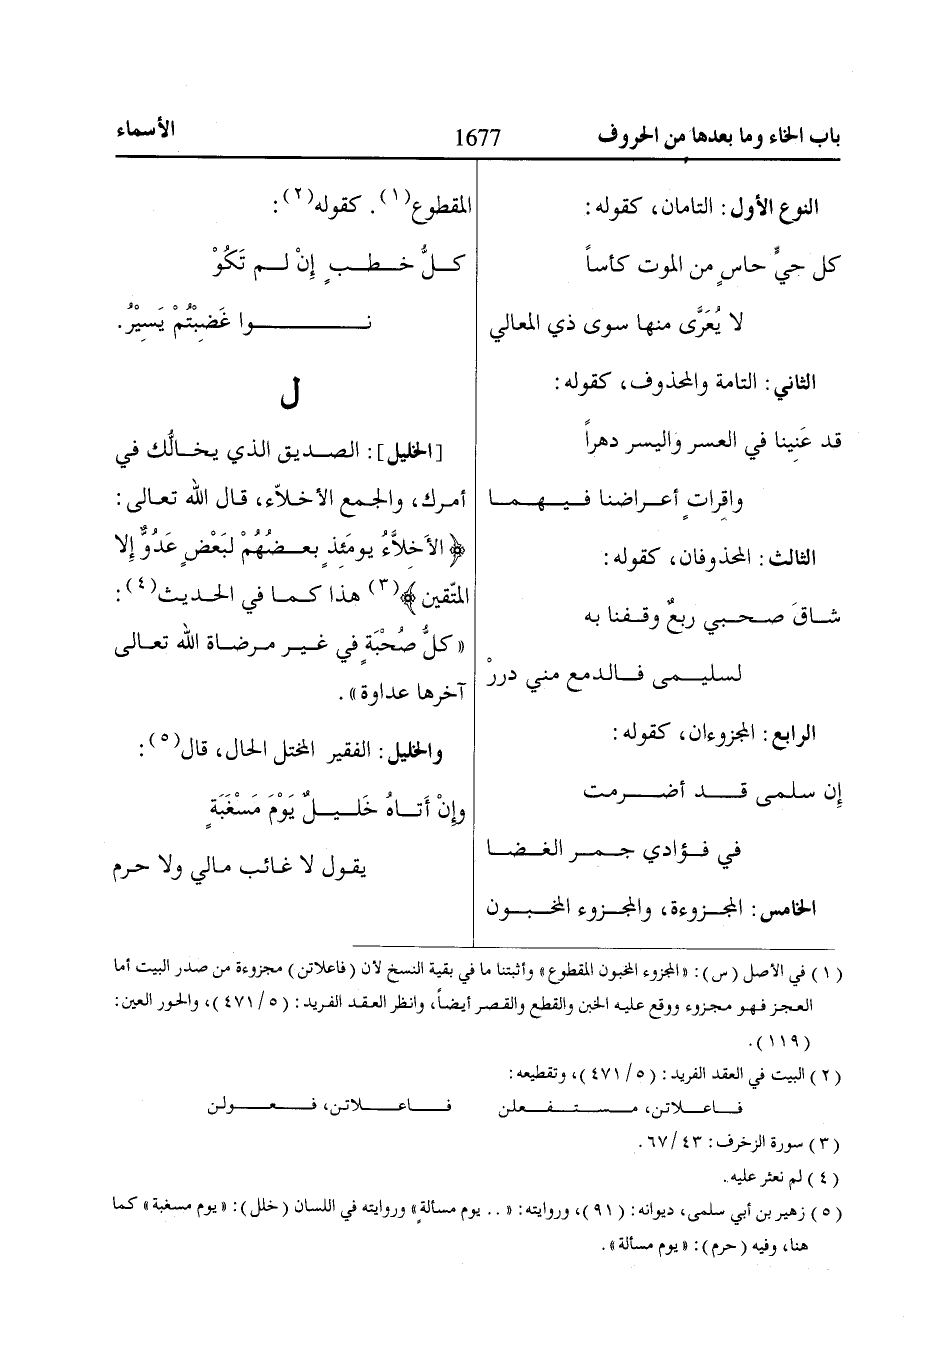 باب الخاء وما بعدها من الحروف 1677 الأسماء
النوع الأول: التامان، كقوله:
كل حيٍّ حاسٍ من الموت كأساً
لا يُعَزَّى منها سوى ذي المعالي
الثاني: التامة والمحذوف، كقوله:
قد عَنِينا في العسر واليسر دهراً
وافراتٍ أعراضنا فيهما
الثالث: المحذوفان، كقوله:
شاقَ صحبي ربعٌ وقفنا به
لسليمى فالدمع مني دررْ
الرابع: المجزوءان، كقوله:
إن سلمى قد أضرمت
في فؤادي جمر الغضا
الخامس: المجزوءة، والمجزوء المخبون
المقطوع(١). كقوله(٢):
كلُّ خطبٍ إنْ لم تَكُوْ
نوا غَضِبْتُمْ يَسِيْرُ.
ل
[الخليل]: الصديق الذي يخالُّك في
أمرك، والجمع الأخلاّء، قال الله تعالى:
﴿الأخلاَّءُ يومَئذٍ بعضُهُمْ لبَعْضٍ عَدُوٌّ إلا
المتّقين﴾(٣) هذا كما في الحديث(٤):
«كلُّ صُحْبَةٍ في غير مرضاة الله تعالى
آخرها عداوة».
والخليل: الفقير المختل الحال، قال(٥):
وإنْ أَتاهُ خَليلٌ يَوْمَ مَسْغَبَةٍ
يقول لا غائب مالي ولا حرم
(١) في الأصل (س): «المجزوء المخبون المقطوع» وأثبتنا ما في بقية النسخ لأن (فاعلاتن) مجزوءة من صدر البيت أما
العجز فهو مجزوء ووقع عليه الخبن والقطع والقصر أيضاً، وانظر العقد الفريد: (٥/٤٧١)، والحور العين:
(١١٩).
(٢) البيت في العقد الفريد: (٥/٤٧١)، وتقطيعه:
فاعلاتن، مستفعلن فاعلاتن، فعولن
(٣) سورة الزخرف: ٤٣/٦٧.
(٤) لم نعثر عليه.
(٥) زهير بن أبي سلمى، ديوانه: (٩١)، وروايته: «.. يوم مسألةٍ» وروايته في اللسان (خلل): «يوم مسغبة» كما
هنا، وفيه (حرم): «يوم مسألة».